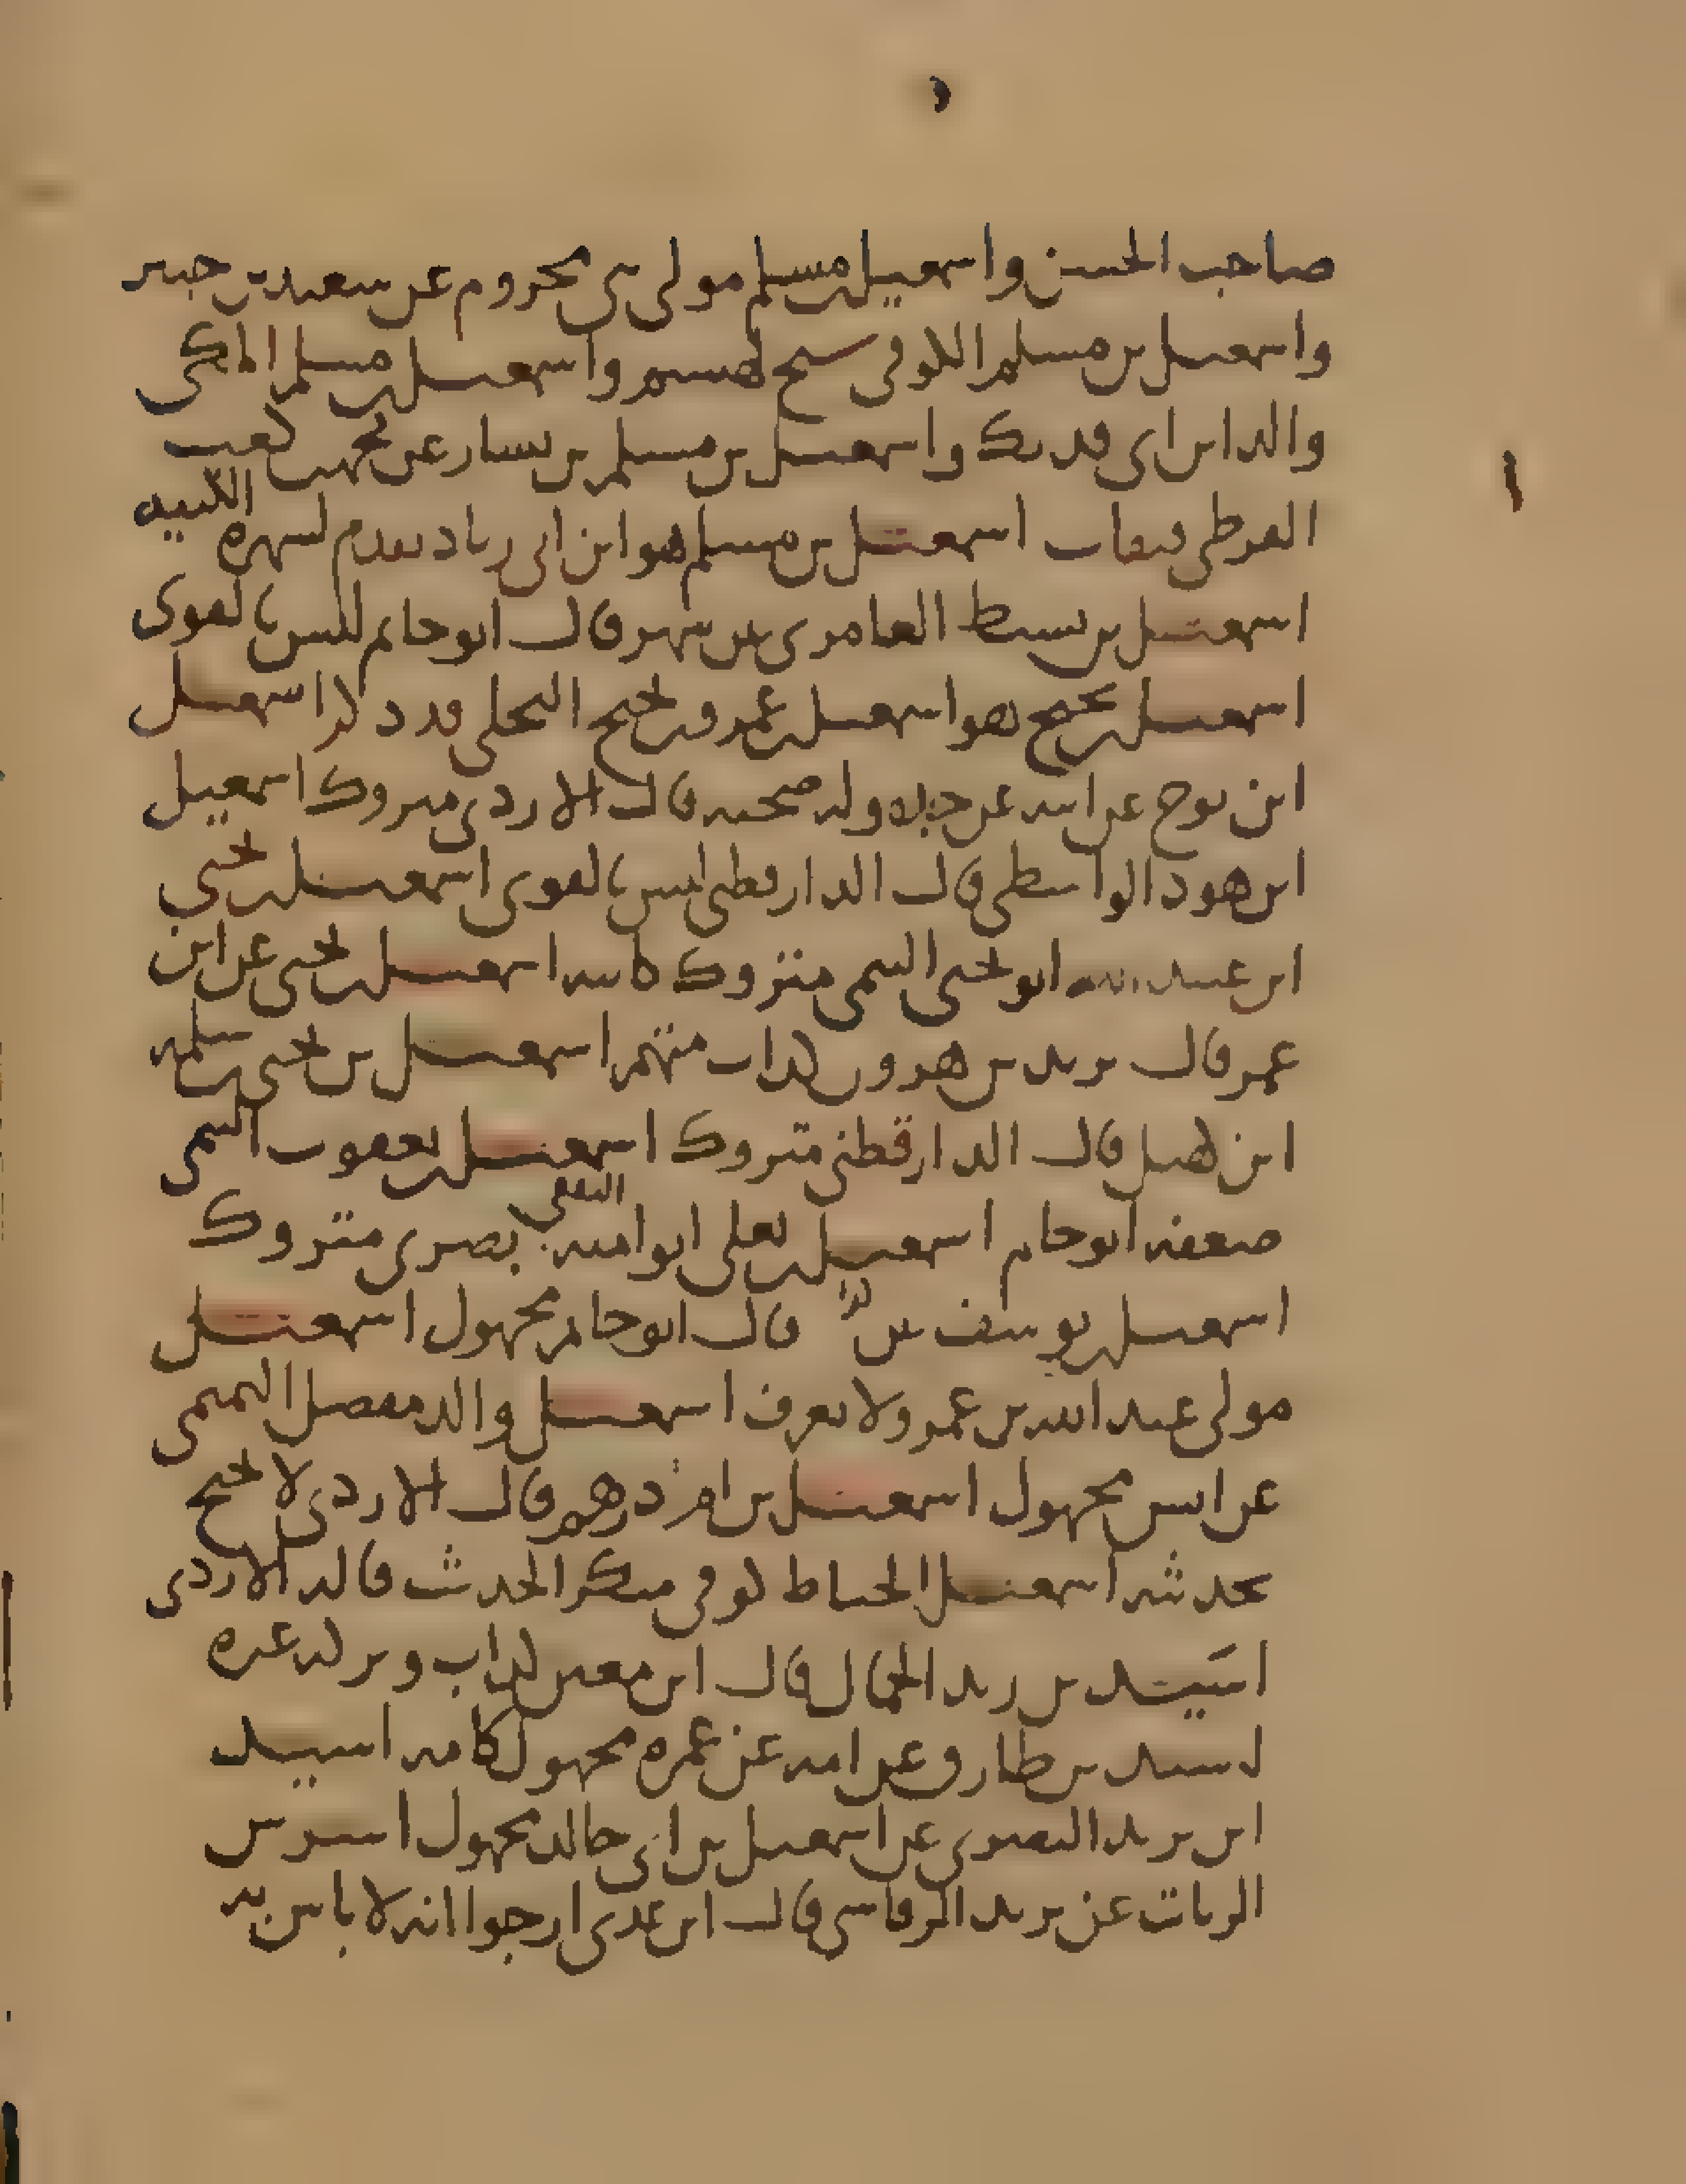 صاحب الحسن واسمعيل بن مسلم مولى بني مخزوم عن سعيد بن جبير
واسمعيل بن مسلم الكوفي شيخ لهشيم واسمعيل بن مسلم المكي
والد ابن ابي فديك واسمعيل بن مسلم بن يسار عن محمد بن كعب
القرظي فثقات اسمعيل بن مسلم هو ابن ابي زياد تقدم لشهرة الكنية
اسمعيل بن نشيط العامري عن شهر قال ابو حاتم ليس بالقوي
اسمعيل بن نجيح هو اسمعيل بن عمرو بن نجيح البجلي قد ذكر اسمعيل
ابن نوح عن ابيه عن جده وله صحبه قال الازدي متروك اسمعيل
ابن هود الواسطي قال الدارقطني ليس بالقوي اسمعيل بن يحيى
ابن عبيد الله ابو يحيى التيمي متروك كاسه اسمعيل بن يحيى عن ابن
عمر قال يزيد بن هرون كذاب متهم اسمعيل بن يحيى بن سلمه
ابن كهيل قال الدارقطني متروك اسمعيل بن يعقوب التيمي
ضعفه ابو حاتم اسمعيل بن يعلى ابو اميه الثقفي بصري متروك
اسمعيل بن يوسف عن قال ابو حاتم مجهول اسمعيل
مولى عبد الله بن عمرو لا يعرف اسمعيل والد مفضل التميمي
عن انس مجهول اسمعيل بن ام درهم قال الازدي لا يحتج
بحديثه اسمعيل الخياط كوفي منكر الحديث قاله الازدي
اسيد بن زيد الجمال قال ابن معين كذاب وتركه غيره
اسيد بن طارق عن امه عن عمره مجهول كامه اسيد
ابن يزيد البصري عن اسمعيل بن ابي خالد مجهول اشرس
الزيات عن يزيد الرقاشي قال ابن عدي ارجوا انه لا باس به